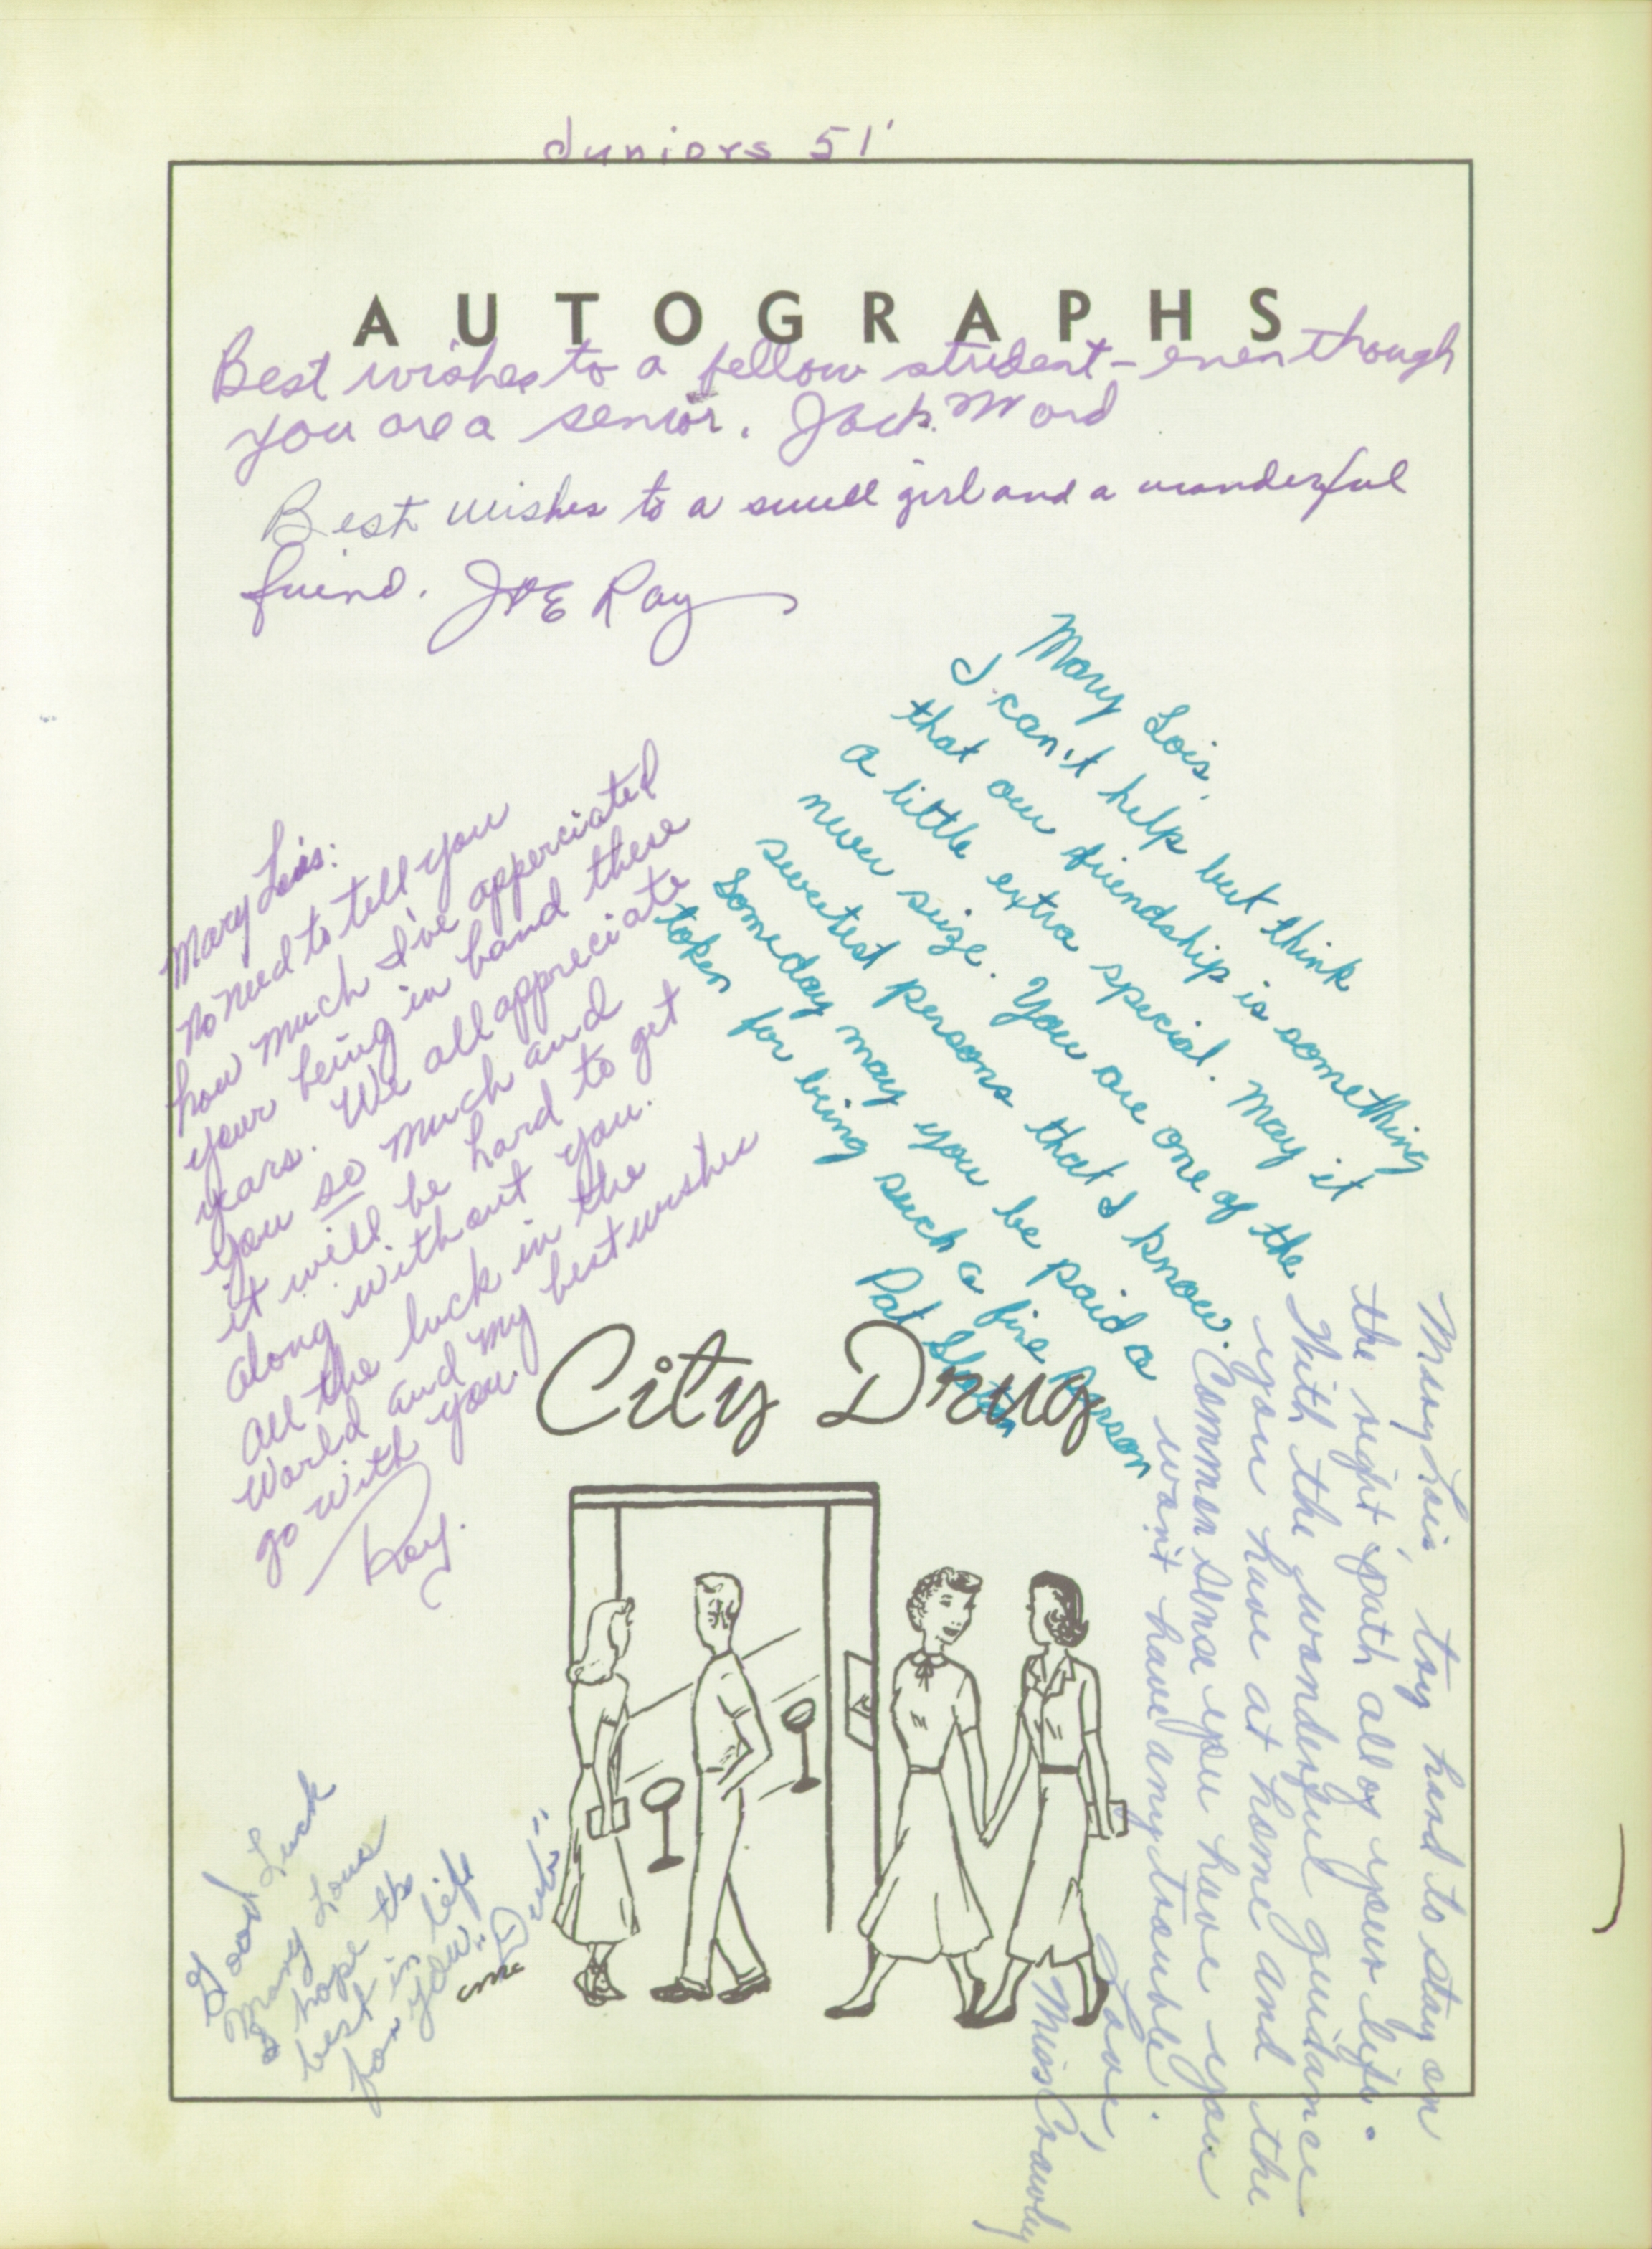 Juniors 51'
AUTOGRAPHS
Best wishes to a fellow student - even though
you are a senior. Jack Word
Best wishes to a swell girl and a wonderful
friend. JOE Ray
Mary Lois,
I can't help but think
that our friendship is something
a little extra special. May it
never seize. You are one of the
sweetest persons that I know.
Someday may you be paid a
token for being such a fine person
Pat
Mary Lois:
No need to tell you
how much I've apperciated
your being in band these
years. We all appreciate
you so much and
it will be hard to get
along without you.
All the luck in the
World and my best wishes
go with you.
Ray.
City Drug
Mary Lois, try hard to stay on
the right path all of your life.
With the wonderful guidance
you have at home and the
Common sense you have you
won't have any trouble.
Love,
Miss Crawley
Good Luck
Mary Lous
I hope the
best in life
for you.